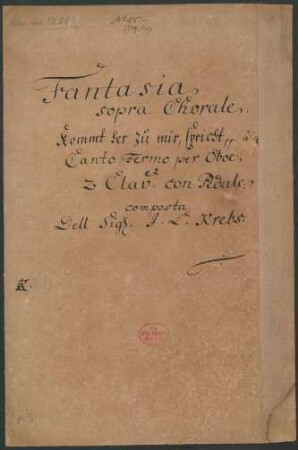 Fantasia
sopra Chorale.
Kommt her zu mir, spricht, à
Canto Fermo per Oboe,
2 Clav: con Pedale,
et
composta
Dell Sigr. J. L. Krebs.
K.